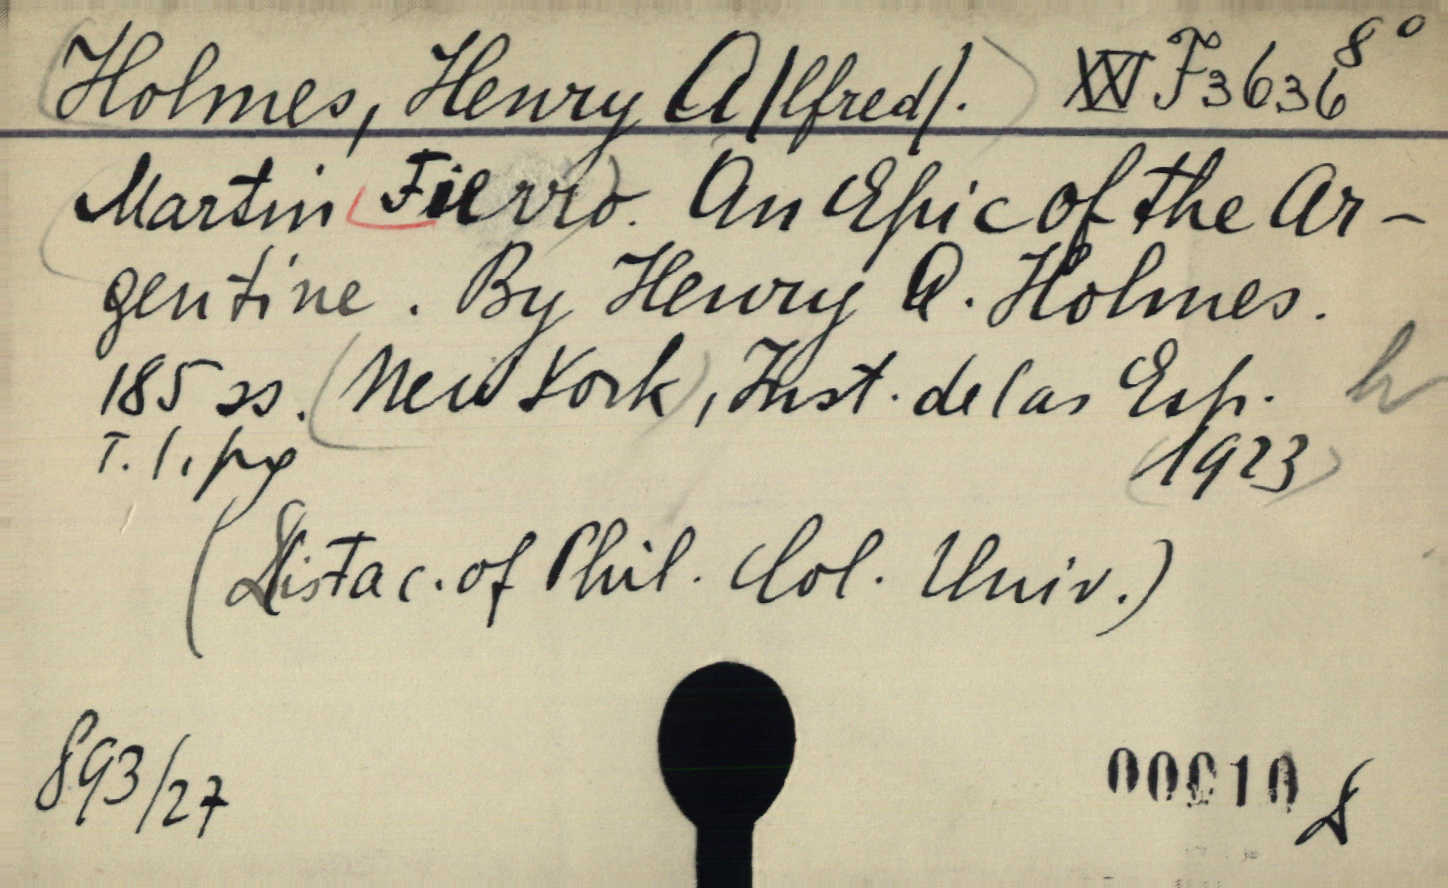 Holmes, Henry A/lfred/. XVI F 3636 8°
Martin Fierro. An Epic of the Ar-
gentine. By Henry A. Holmes.
185 ss. (New York), Inst. de las Esp.
T. l, pg (1923)
(Distac. of Phil. Col. Univ.)
893/27
00010